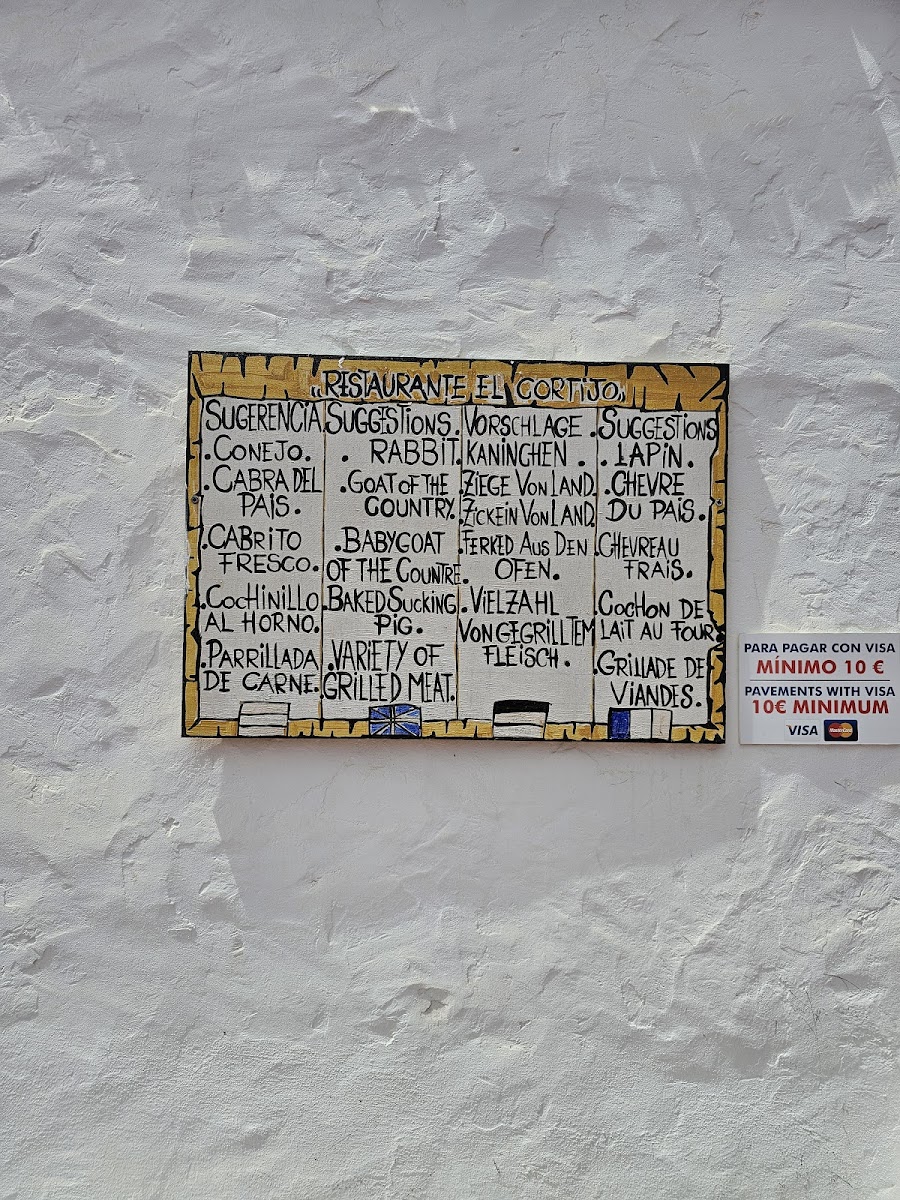 "RESTAURANTE EL CORTIJO"
SUGERENCIA
.CONEJO.
.CABRA DEL
PAIS.
.CABRITO
FRESCO.
.COCHINILLO
AL HORNO.
.PARRILLADA
DE CARNE.
SUGGESTIONS.
. RABBIT.
.GOAT OF THE
COUNTRY.
.BABYGOAT
OF THE COUNTRE.
.BAKED SUCKING
PIG.
.VARIETY OF
GRILLED MEAT.
VORSCHLAGE.
KANINCHEN.
.ZIEGE VON LAND.
.ZICKEIN VON LAND.
.FERKED AUS DEN
OFEN.
.VIELZAHL
VON GEGRILLTEM
FLEISCH.
.SUGGESTIONS
.LAPIN.
.CHEVRE
DU PAIS.
.CHEVREAU
FRAIS.
.COCHON DE
LAIT AU FOUR.
.GRILLADE DE
VIANDES.
PARA PAGAR CON VISA
MÍNIMO 10 €
PAVEMENTS WITH VISA
10€ MINIMUM
VISA MasterCard